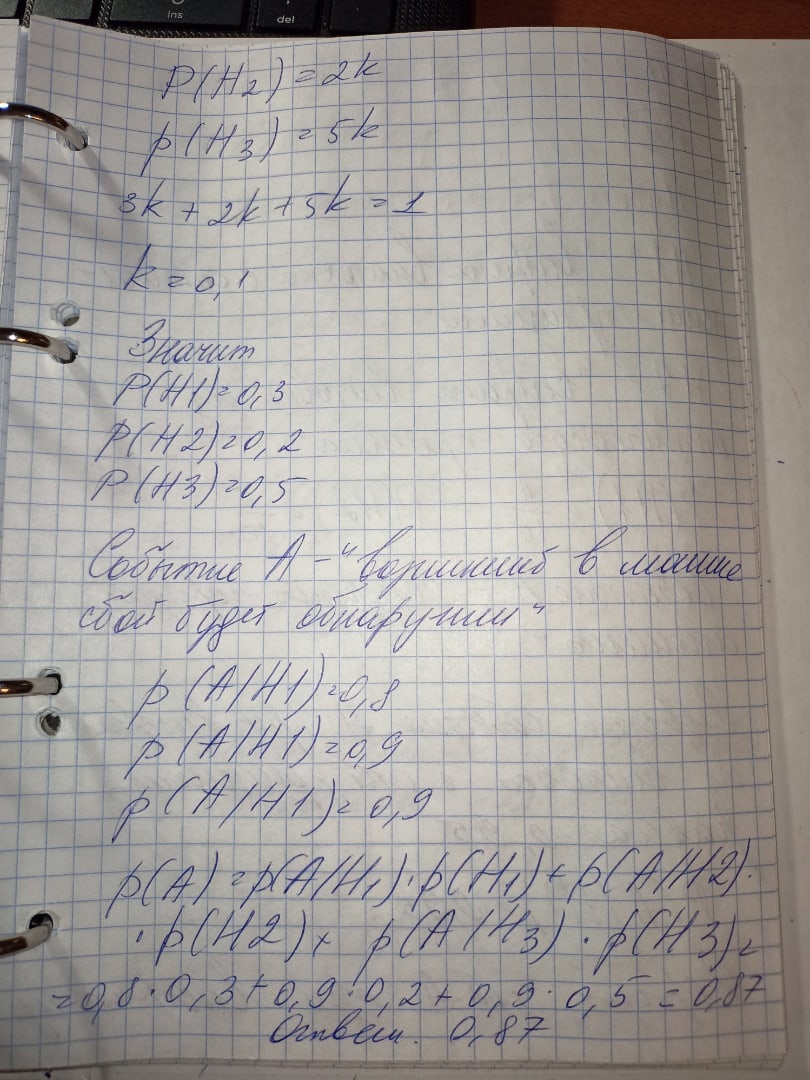 ins
del
P(H2) = 2k
p(H3) = 5k
3k + 2k + 5k = 1
k = 0,1
Значит
P(H1)=0,3
P(H2)=0,2
P(H3)=0,5
Событие А - "возникший в машине
сбой будет обнаружен"
p(A/H1)=0,8
p(A/H1)=0,9
p(A/H1)=0,9
p(A)=p(A/H1)·p(H1)+p(A/H2)·
·p(H2)+ p(A/H3)·p(H3)=
=0,8·0,3+0,9·0,2+0,9·0,5=0,87
Ответ. 0,87